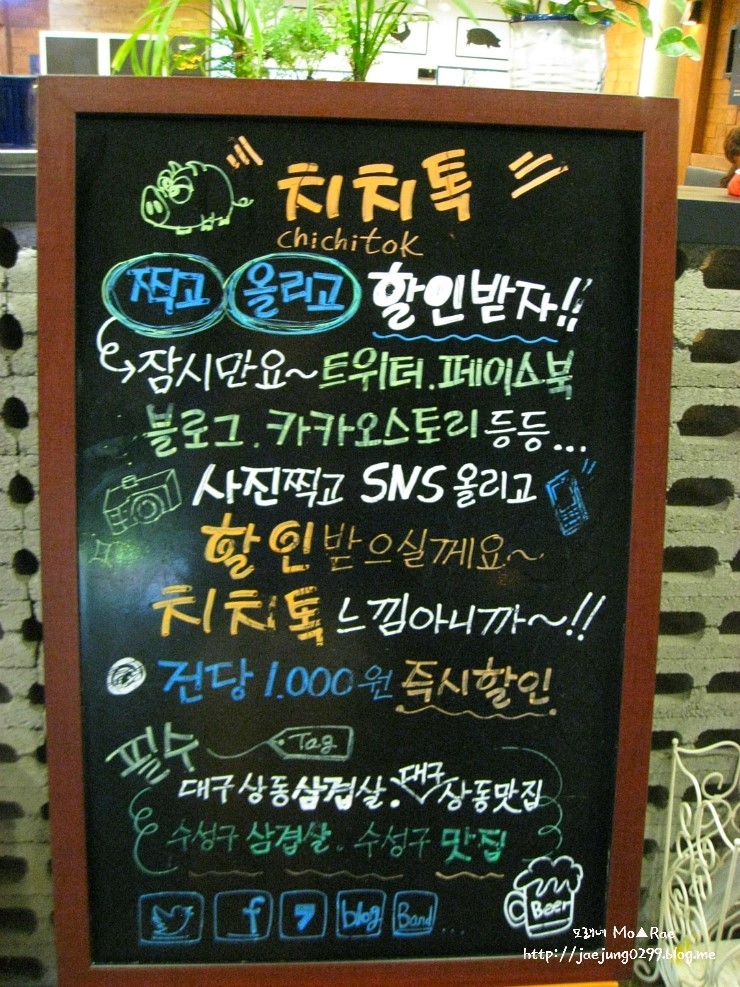 치치톡
chichitok
찍고 올리고 할인받자!!
잠시만요~ 트위터.페이스북
블로그.카카오스토리 등등...
사진찍고 SNS 올리고
할인 받으실께요~
치치톡 느낌아니까~!!
전당 1.000원 즉시할인
필수 Tag
대구상동삼겹살. 대구♡상동맛집
수성구 삼겹살. 수성구 맛집
f 7 blog Band ...
Beer
모래너 Mo▲Rae
http://jaejung0299.blog.me